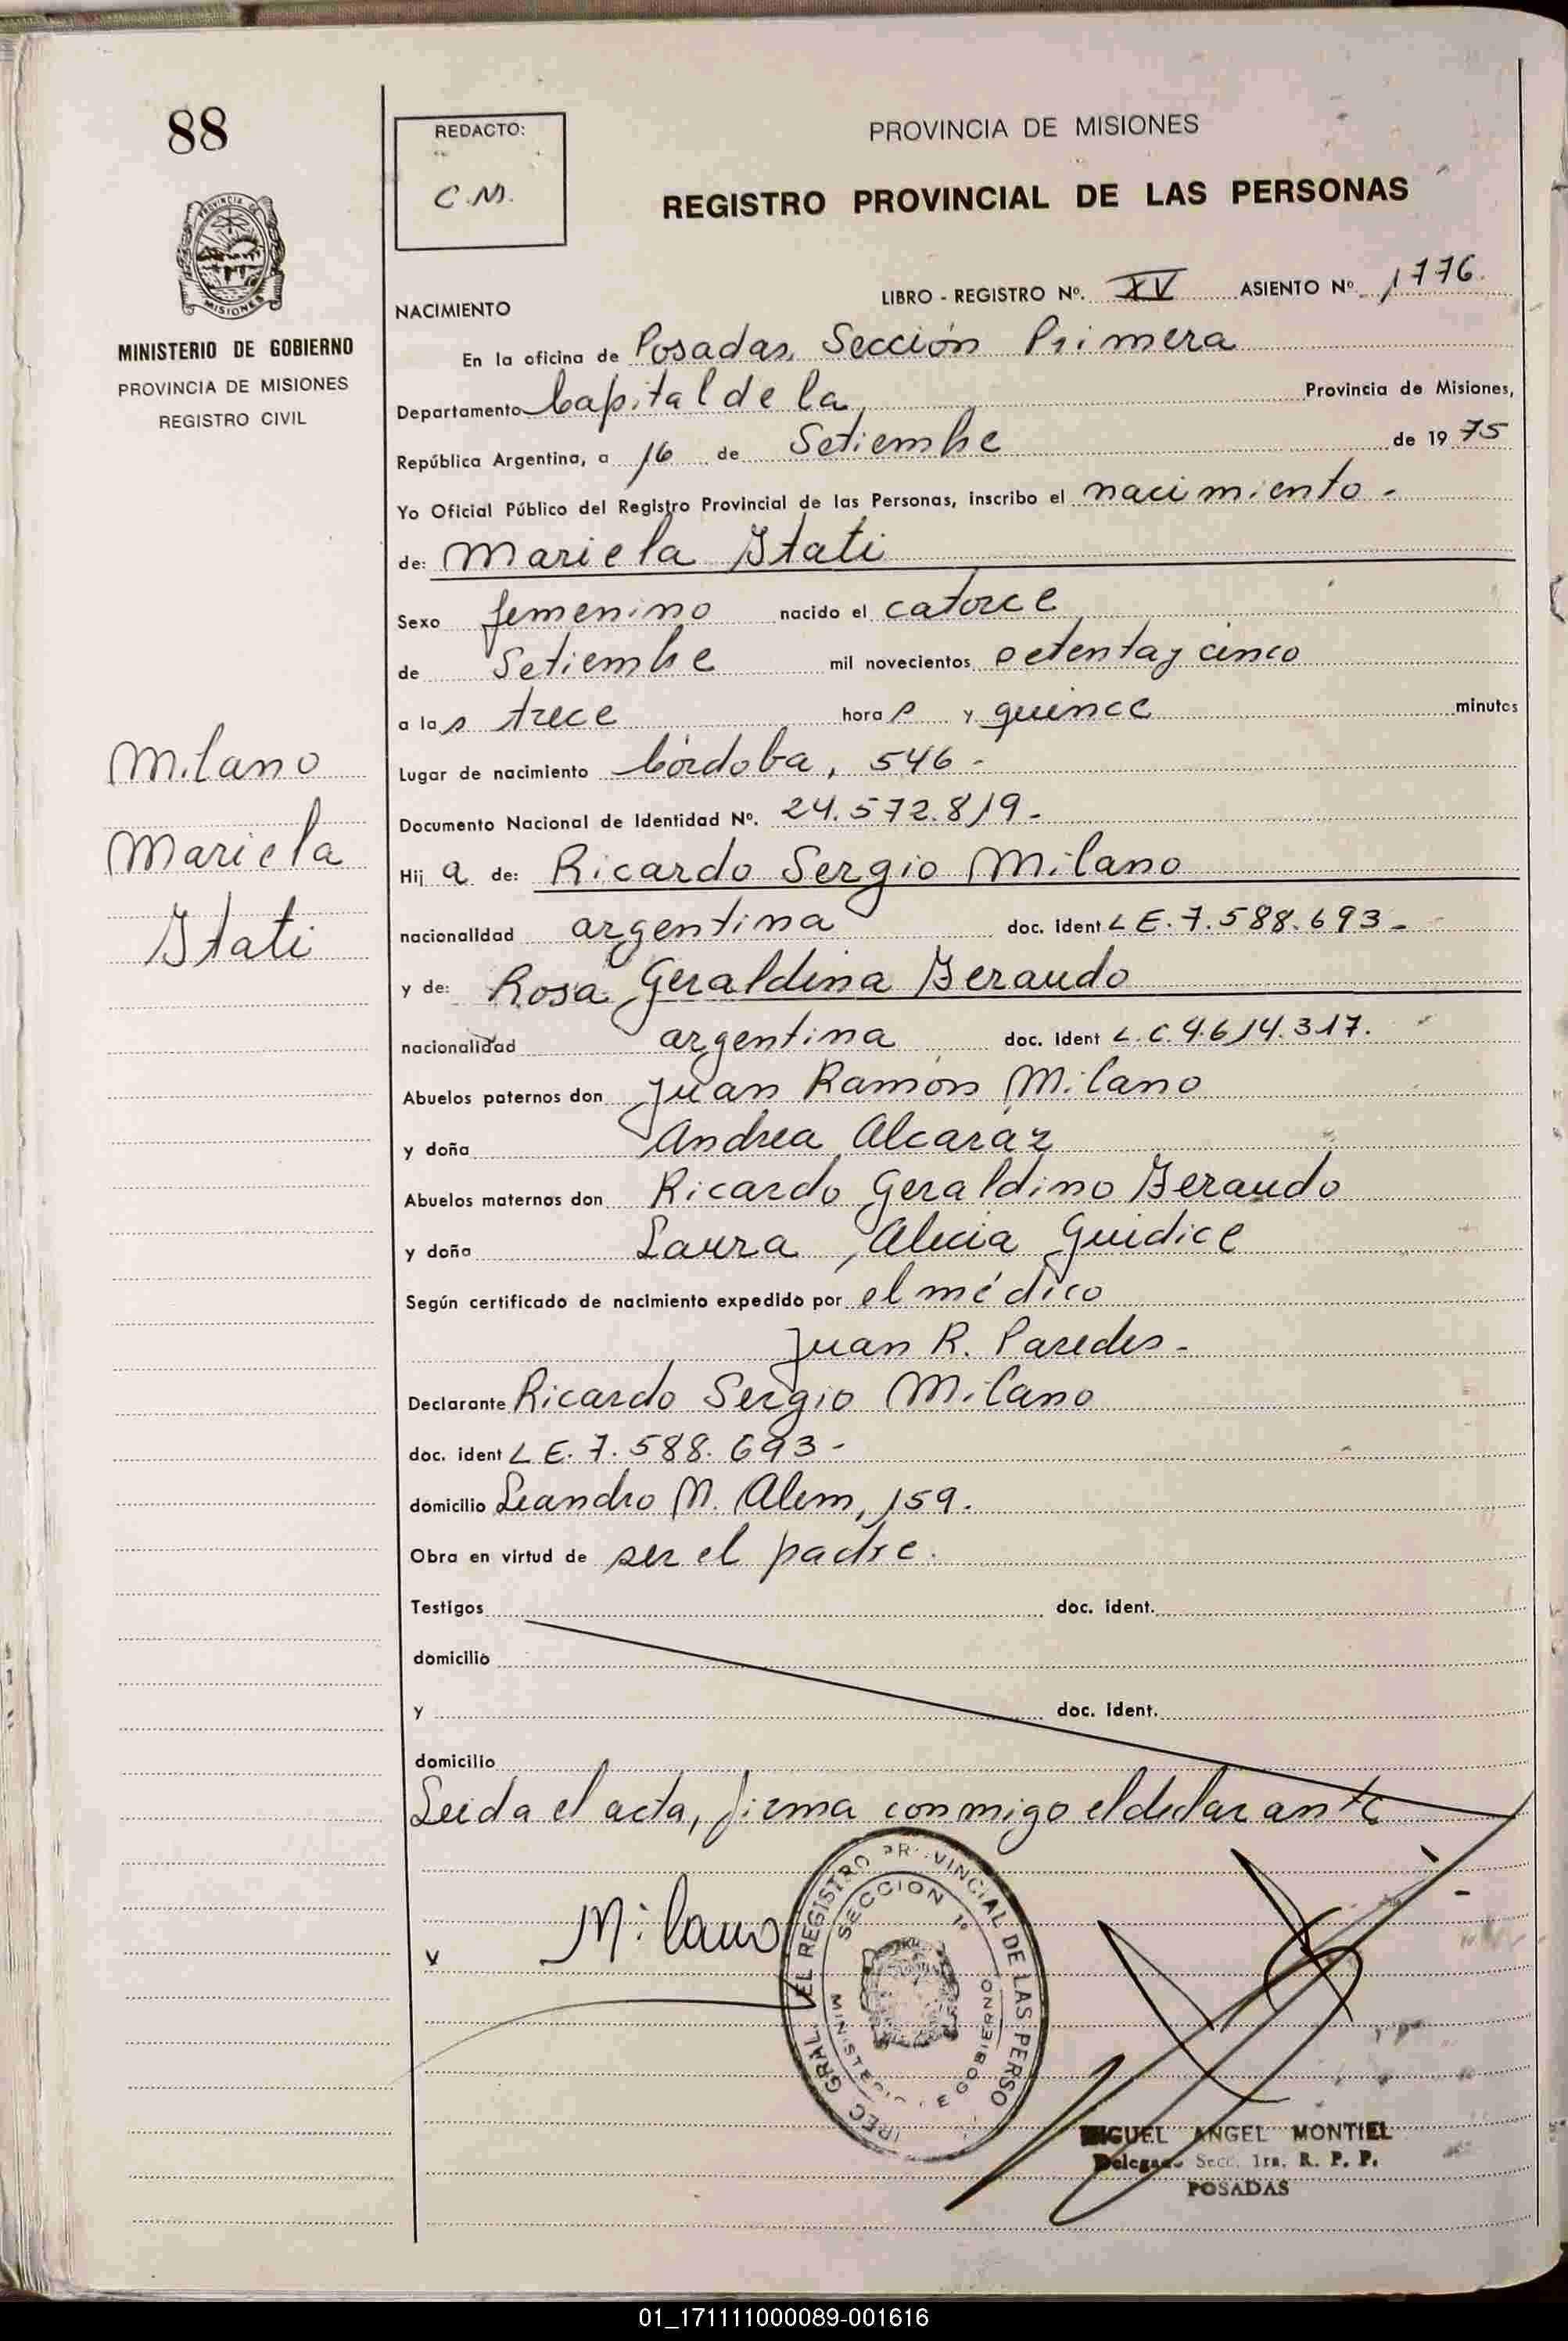 88
PROVINCIA DE MISIONES
MINISTERIO DE GOBIERNO
PROVINCIA DE MISIONES
REGISTRO CIVIL
REDACTO:
C.M.
PROVINCIA DE MISIONES
REGISTRO PROVINCIAL DE LAS PERSONAS
LIBRO - REGISTRO Nº. XV ASIENTO Nº 1776.
NACIMIENTO
En la oficina de Posadas, Sección Primera
Departamento Capital de la Provincia de Misiones,
República Argentina, a 16 de Setiembre de 1975
Yo Oficial Público del Registro Provincial de las Personas, inscribo el nacimiento -
de: Mariela Itati
Sexo femenino nacido el catorce
de Setiembre mil novecientos setenta y cinco
a las trece horas y quince minutos
Lugar de nacimiento Córdoba, 546 -
Documento Nacional de Identidad Nº. 24.572.819 -
Hija de: Ricardo Sergio Milano
nacionalidad argentina doc. ident L E. 7.588.693 -
y de: Rosa Geraldina Beraudo
nacionalidad argentina doc. ident L. C. 4.614.317.
Abuelos paternos don Juan Ramón Milano
y doña Andrea Alcaráz
Abuelos maternos don Ricardo Geraldino Beraudo
y doña Laura Alicia Guidice
Según certificado de nacimiento expedido por el médico
Juan R. Paredes -
Declarante Ricardo Sergio Milano
doc. ident L E. 7.588.693 -
domicilio Leandro M. Alem, 159.
Obra en virtud de ser el padre.
Testigos doc. ident.
domicilio
y doc. ident.
domicilio
Leida el acta, firma conmigo el declarante
Milano
Mariela
Itati
Milano
GRAL. EL REGISTRO PROVINCIAL DE LAS PERSO
SECCION 1º
GOBIERNO
MIGUEL ANGEL MONTIEL
Delegado Secc. 1ra. R. P. P.
POSADAS
01_171111000089-001616